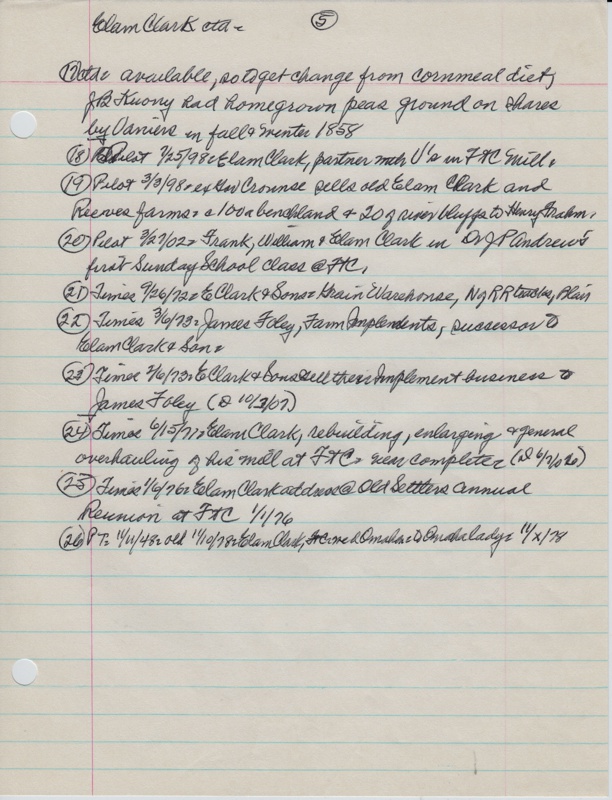 Elam Clark ctd = (5)
(17) ctd = available, so to get change from cornmeal diet,
J B Kuony had homegrown peas ground on shares
by Daniers in fall & winter 1858
(18) Pilot 7/25/98 = Elam Clark, partner U's in FtC Mill.
(19) Pilot 3/3/98 = ex Gov Crounse sells old Elam Clark and
Reeves farms = a 100 a benchland & 20 river bluffs to Henry Frahm.
(20) Pilot 3/27/02 = Frank, William & Elam Clark in Dr J P Andrew's
first Sunday School class @ FtC.
(21) Times 9/26/72 = E Clark & Sons = Grain Warehouse, N of RR tracks, Blair
(22) Times 3/6/73 = James Foley, Farm Implements, successor to
Elam Clark & Son =
(23) Times 2/6/73 = E Clark & Sons sell their Implement business to
James Foley (D 10/3/07)
(24) Times 6/15/71 = Elam Clark, rebuilding, enlarging & general
overhauling of his mill at FtC = near completer
(25) Times 1/6/76 = Elam Clark address @ Old Settlers annual
Reunion at FtC 1/1/76
(26) P T = 11/11/48 = old 11/10/78 = Elam Clark, Omaha = to Omaha lady = 11/X/78